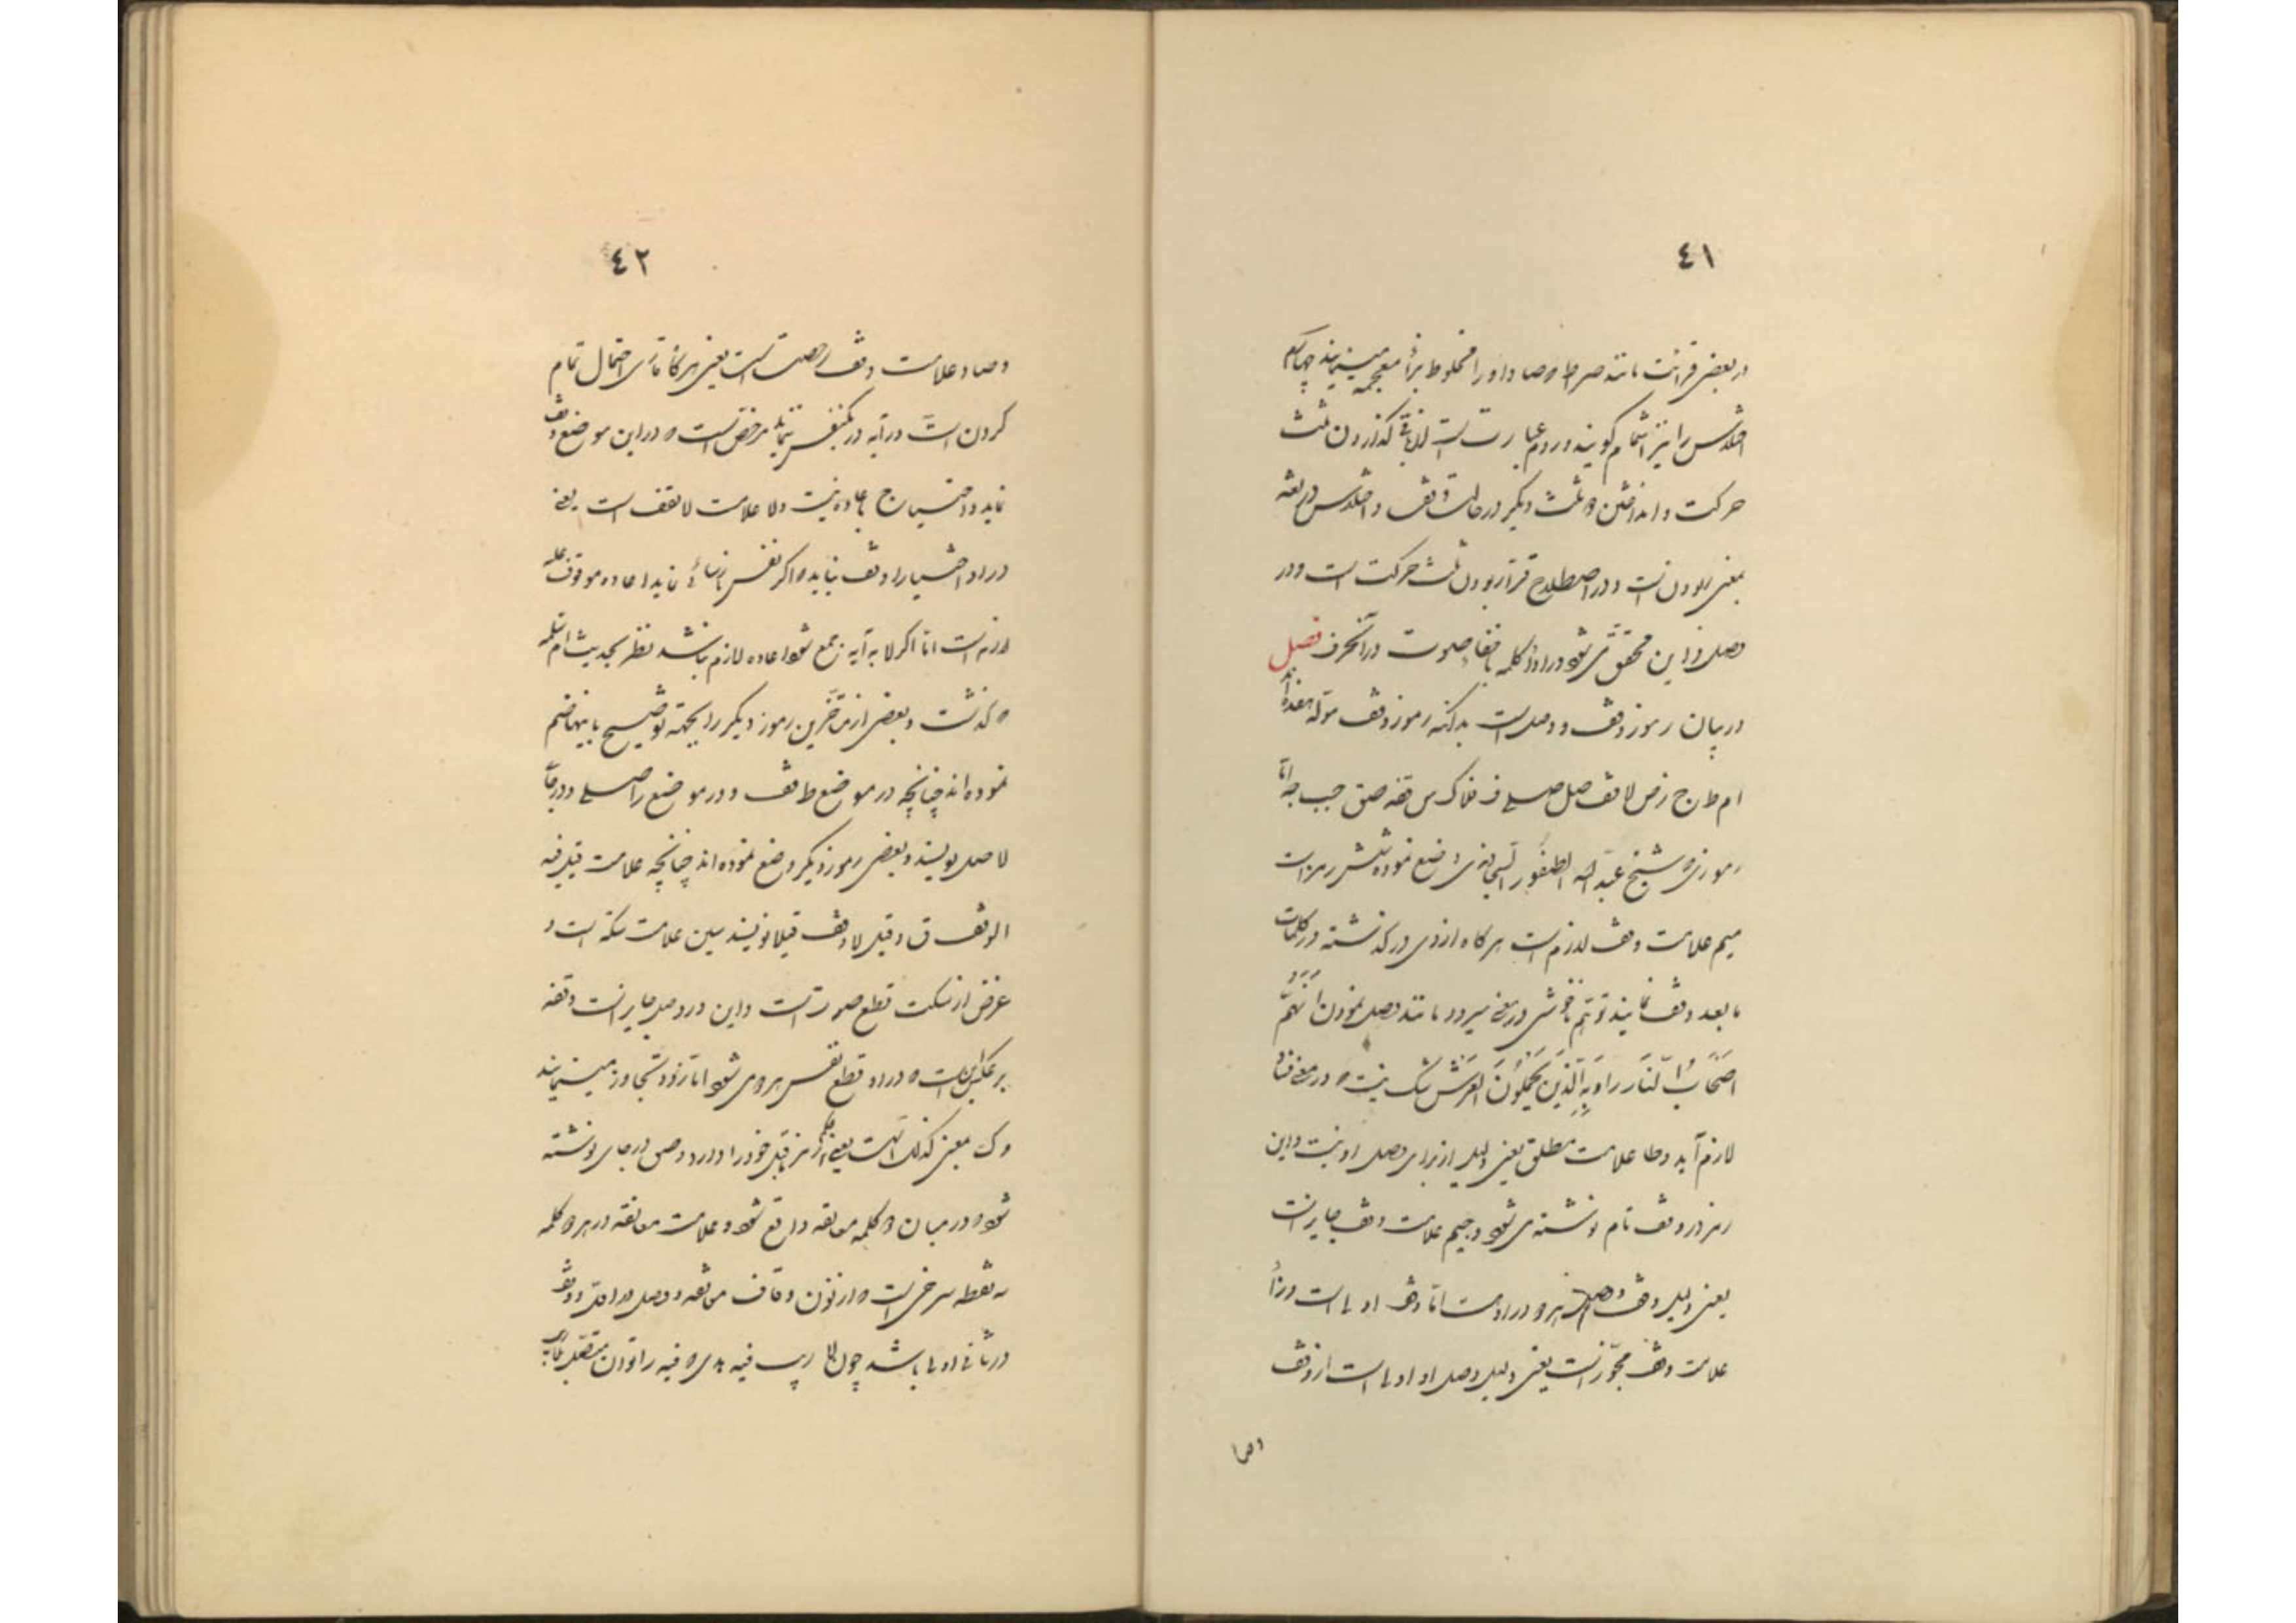 ٤١
در بعضی قرائت مانند صراط که صاد او را مخلوط بزاء معجمه مینمایند چهارم
اختلاس را نیز اشمام گویند و روم عبارت است از باقی گذاردن ثلث
حرکت و انداختن دو ثلث دیگر در حالت وقف و اختلاس در لغة
بمعنی ربودن است و در اصطلاح قراء ربودن ثلث حرکت است و در
وصل و این محقق می شود در اواخر کلمه باخفاء صوت در آنحرف فصل
در بیان رموز وقف و وصل است بدانکه رموز وقف موله هفده اند
ام ط ج ز ص لا قف صل صلی ف فلا ک س قفه صق جب جه اما
رموزی که شیخ عبد الله الطیفور السجاوندی وضع نموده شش رمز است
میم علامت وقف لازم است هرگاه از وی در گذشته در کلمات
ما بعد وقف نمایند توهم ناخوشی در معنی میرود مانند وصل نمودن انهم
اصحاب النار را به الذین یحملون العرش شک نیست که در معنی فساد
لازم آید و طا علامت مطلق یعنی دلیلی از برای وصل او نیست و این
رمز در وقف تام نوشته می شود و جیم علامت وقف جایز است
یعنی دلیل وقف و وصل هر دو در اوست اما وقف اولی است و زا
علامت وقف مجوز است یعنی دلیل وصل او اولی است از وقف
وصا
٤٢
وصاد علامت وقف رخصت است یعنی هرگاه قاری احتمال تمام
کردن است در آیه در یکنفس ننماید مرخص است که در این موضع وقف
نماید و احتیاج باعاده نیست ولا علامت لا تقف است یعنی
در او اختیارا وقف نباید که اگر نفس نارسائی نماید اعاده موقوف علیه
لازم است اما اگر لا به آیه جمع شود اعاده لازم نباشد نظر بحدیث ام سلمه
که گذشت و بعضی از متأخرین رموز دیگر را بجهة توضیح باینها ضم
نموده اند چنانچه در موضع ط قف و در موضع ز صلی و در جای
لا صل نویسند و بعضی رموز دیگر وضع نموده اند چنانچه علامت قیل فیه
الوقف ق و قیل لا وقف فیلا نویسند سین علامت سکته است و
غرض از سکت قطع صوت است و این در وصل جایز است وقفه
بر عکس این است که در او قطع نفس هم می شود اما زود تجاوز مینمایند
و ک بمعنی کذلک است یعنی حکم رمز ما قبل خود را دارد و ص در جای نوشته
شود که در میان دو کلمه معانقه واقع شود و علامت معانقه در هر دو کلمه
سه نقطه سرخی است که از نون وقاف معانقه و وصل در اول و وقف
در ثانی اولی باشد چون لا ریب فیه هدی که فیه را توان متصل بماقبل